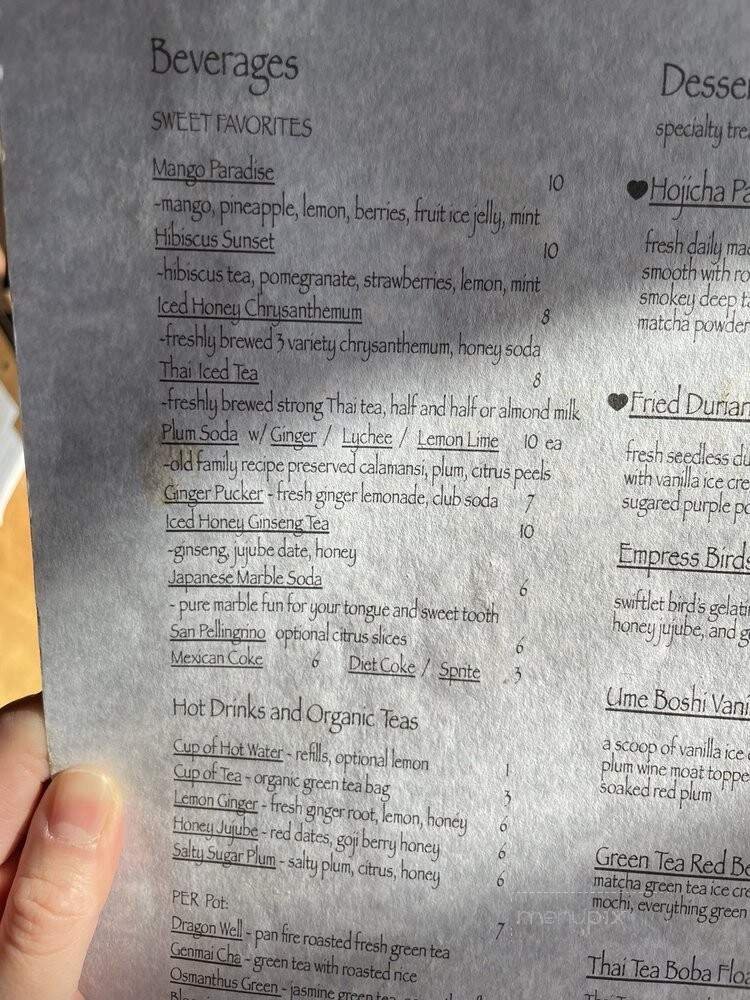 Beverages
SWEET FAVORITES
Mango Paradise 10
-mango, pineapple, lemon, berries, fruit ice jelly, mint
Hibiscus Sunset 10
-hibiscus tea, pomegranate, strawberries, lemon, mint
Iced Honey Chrysanthemum 8
-freshly brewed 3 variety chrysanthemum, honey soda
Thai Iced Tea 8
-freshly brewed strong Thai tea, half and half or almond milk
Plum Soda w/ Ginger / Lychee / Lemon Lime 10 ea
-old family recipe preserved calamansi, plum, citrus peels
Ginger Pucker - fresh ginger lemonade, club soda 7
Iced Honey Ginseng Tea 10
-ginseng, jujube date, honey
Japanese Marble Soda 6
- pure marble fun for your tongue and sweet tooth
San Pellingnno optional citrus slices 6
Mexican Coke 6 Diet Coke / Sprite 3
Hot Drinks and Organic Teas
Cup of Hot Water - refills, optional lemon 1
Cup of Tea - organic green tea bag 3
Lemon Ginger - fresh ginger root, lemon, honey 6
Honey Jujube - red dates, goji berry honey 6
Salty Sugar Plum - salty plum, citrus, honey 6
PER Pot: 7
Dragon Well - pan fire roasted fresh green tea
Genmai Cha - green tea with roasted rice
Osmanthus Green - jasmine green tea
Desse
specialty tre
Hojicha Pa
fresh daily mad
smooth with ro
smokey deep ta
matcha powder
Fried Durian
fresh seedless du
with vanilla ice cre
sugared purple po
Empress Birds
swiftlet bird's gelati
honey jujube, and g
Ume Boshi Vani
a scoop of vanilla ice c
plum wine moat toppe
soaked red plum
Green Tea Red Be
matcha green tea ice cre
mochi, everything green
Thai Tea Boba Floa
menupix